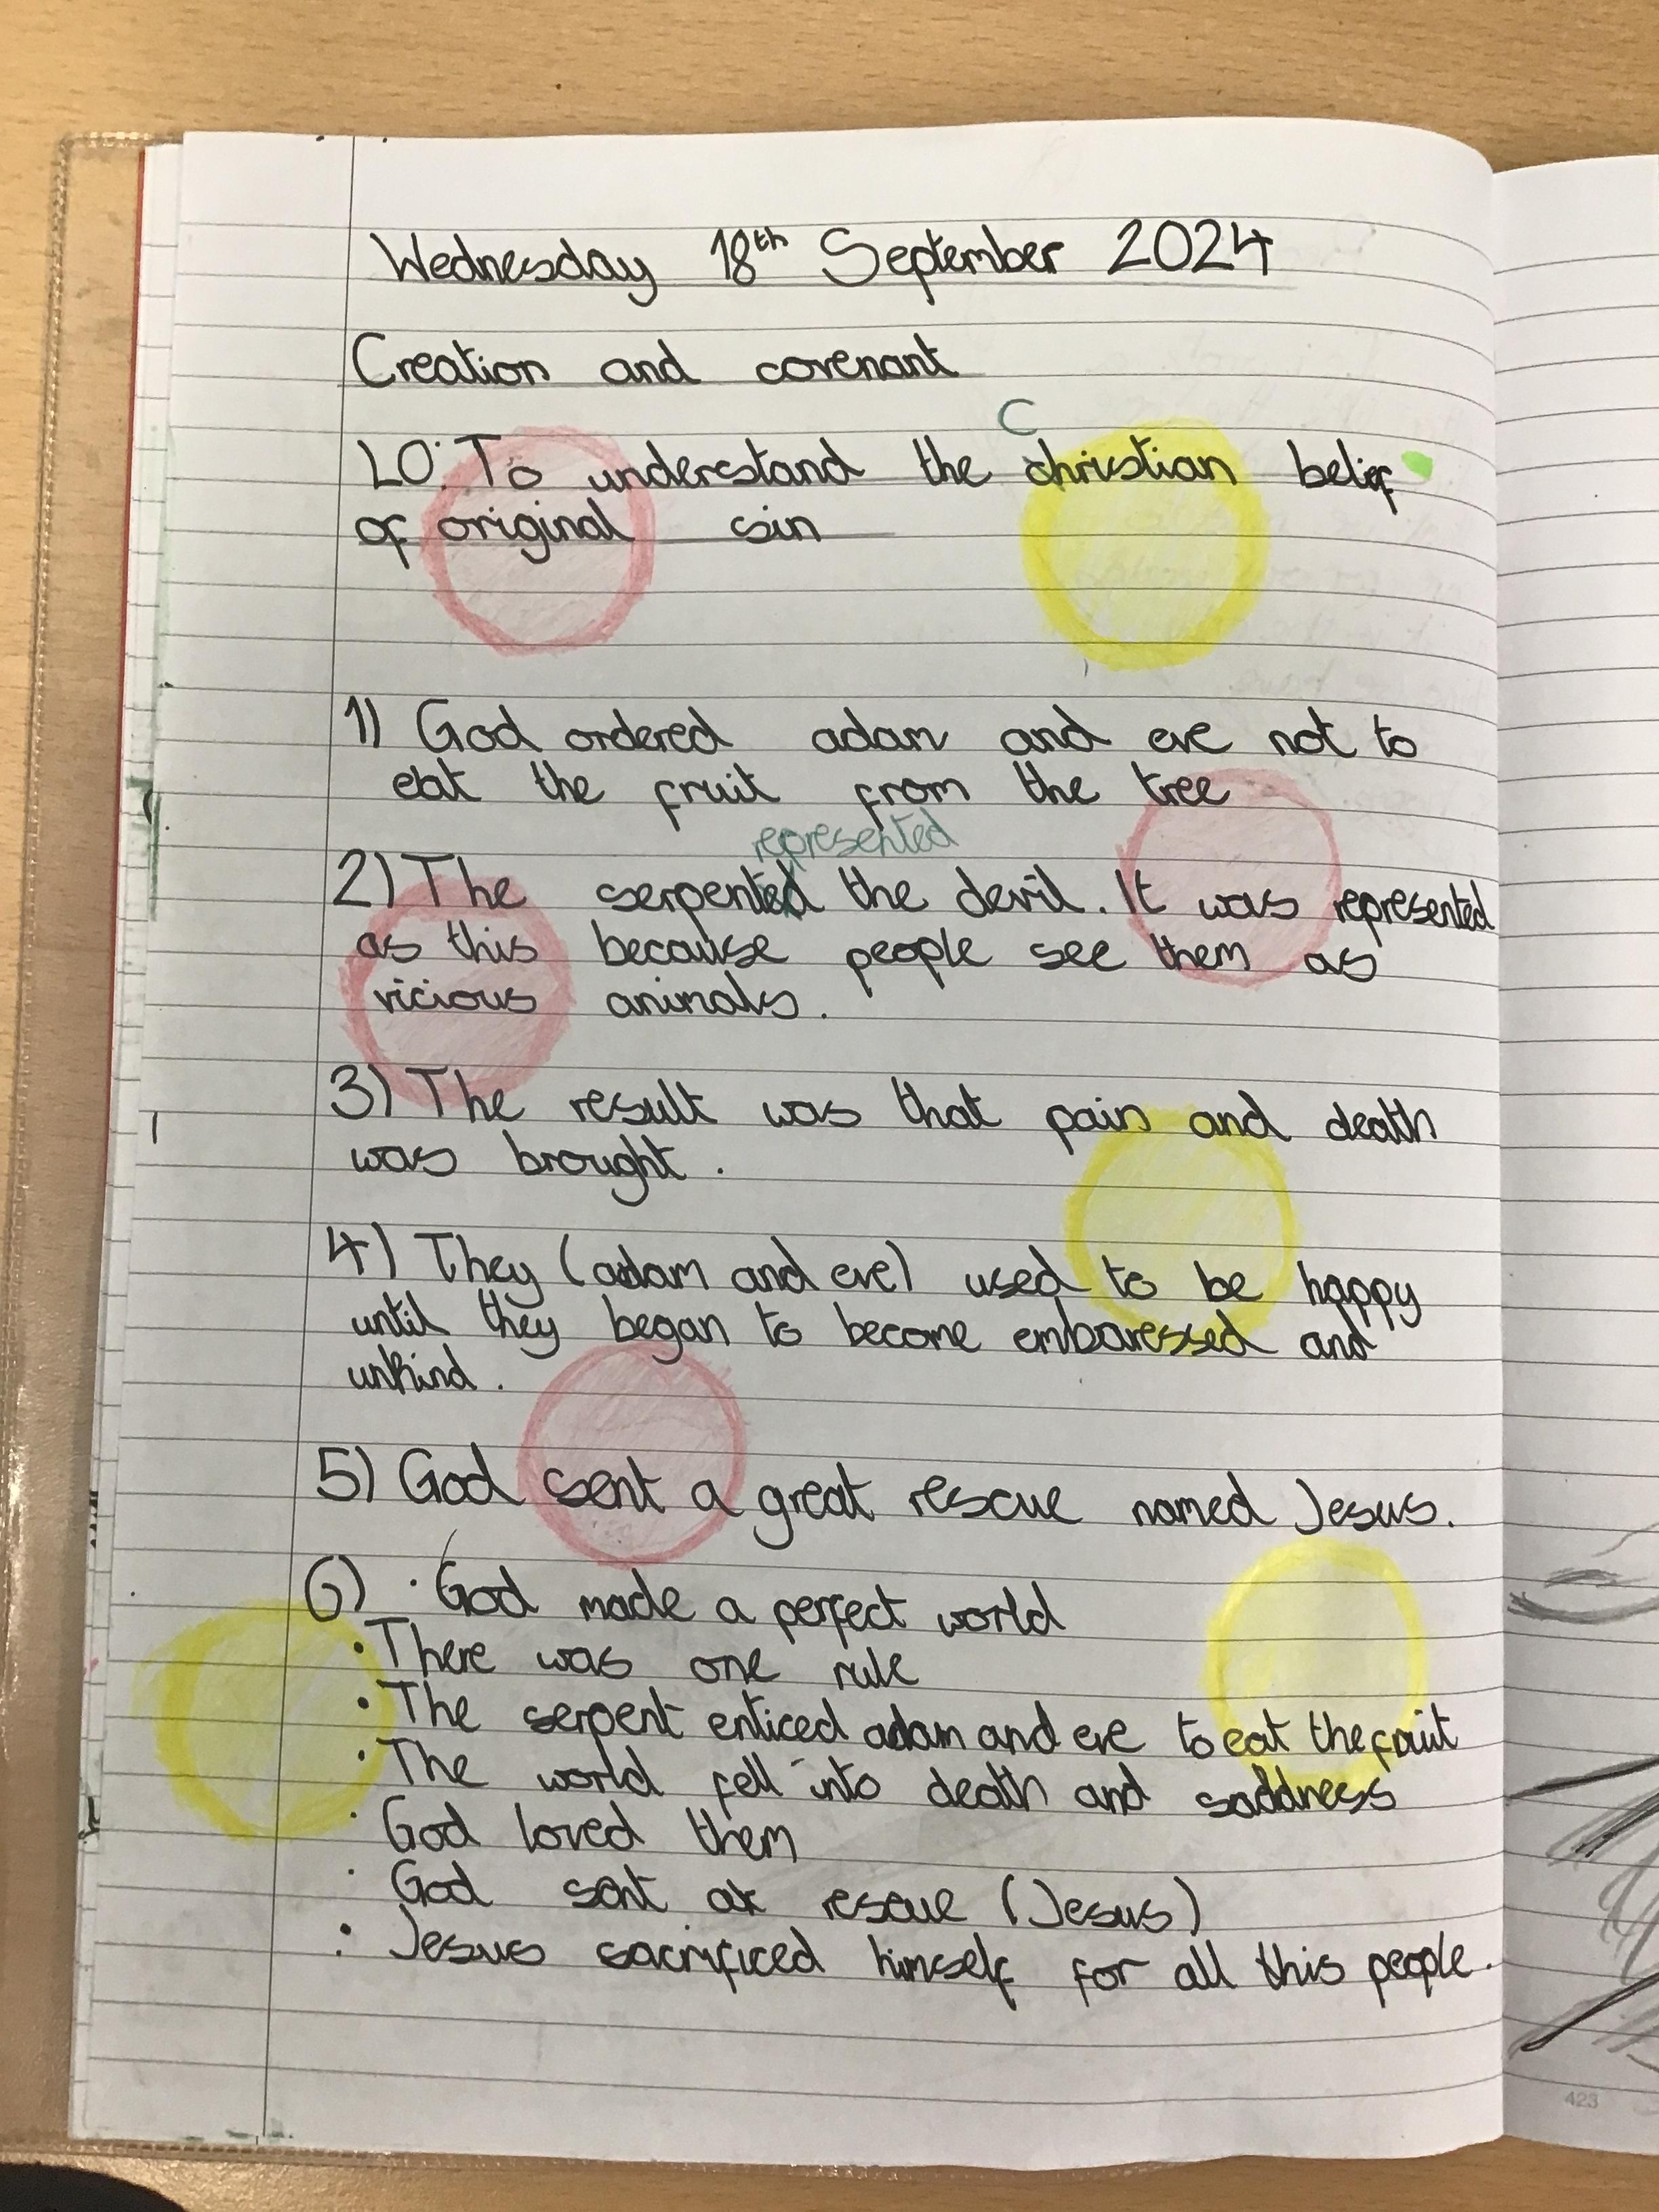 Wednesday 18th September 2024
Creation and covenant
C
LO: To understand the christian belief
of original sin
1) God ordered adam and eve not to
eat the fruit from the tree
represented
2) The serpented the devil. It was represented
as this because people see them as
vicious animals.
3) The result was that pain and death
was brought.
4) They (adam and eve) used to be happy
until they began to become embaressed and
unkind.
5) God sent a great rescue named Jesus.
6) · God made a perfect world
• There was one rule
• The serpent enticed adam and eve to eat the fruit
· The world fell into death and saddness
· God loved them
· God sent a rescue (Jesus)
• Jesus sacrificed himself for all this people.
423